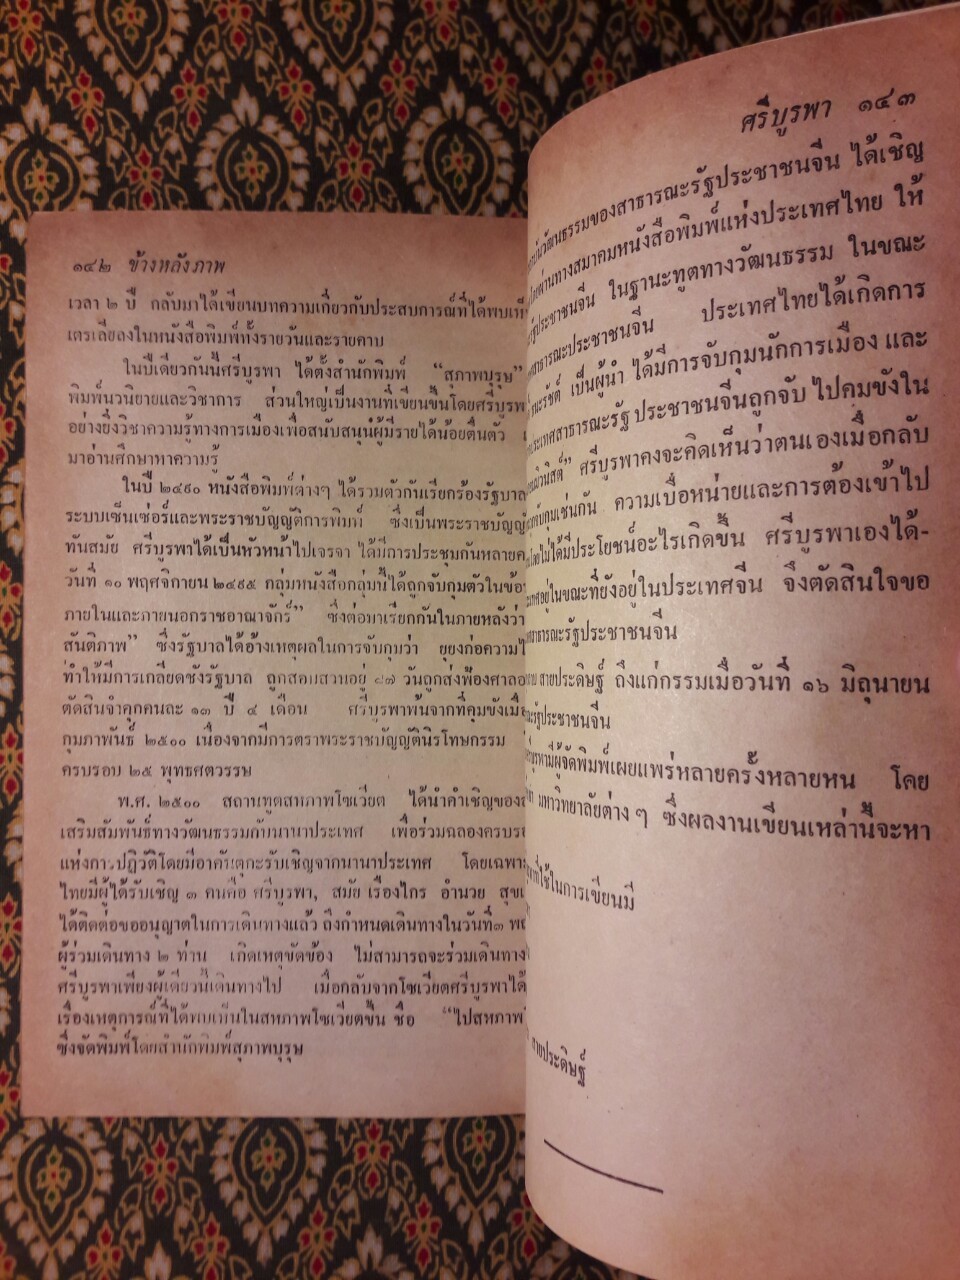 ๑๔๒ ข้างหลังภาพ
เวลา ๒ ปี กลับมาได้เขียนบทความเกี่ยวกับประสบการณ์ที่ได้พบเห็น
เตรเลียลงในหนังสือพิมพ์ทั้งรายวันและรายคาบ
ในปีเดียวกันนี้ศรีบูรพา ได้ตั้งสำนักพิมพ์ “สุภาพบุรุษ”
พิมพ์นวนิยายและวิชาการ ส่วนใหญ่เป็นงานที่เขียนขึ้นโดยศรีบูรพา
อย่างยิ่งวิชาความรู้ทางการเมืองเพื่อสนับสนุนผู้มีรายได้น้อยตื่นตัว
มาอ่านศึกษาหาความรู้
ในปี ๒๔๙๐ หนังสือพิมพ์ต่างๆ ได้รวมตัวกันเรียกร้องรัฐบาล
ระบบเซ็นเซ่อร์และพระราชบัญญัติการพิมพ์ ซึ่งเป็นพระราชบัญญั
ทันสมัย ศรีบูรพาได้เป็นหัวหน้าไปเจรจา ได้มีการประชุมกันหลาย
วันที่ ๑๐ พฤศจิกายน ๒๔๙๕ กลุ่มหนังสือกลุ่มนี้ได้ถูกจับกุมตัวในข้อ
ภายในและภายนอกราชอาณาจักร์” ซึ่งต่อมาเรียกกันในภายหลังว่า
สันติภาพ” ซึ่งรัฐบาลได้อ้างเหตุผลในการจับกุมว่า ยุยงก่อความ
ทำให้มีการเกลียดชังรัฐบาล ถูกสอบสวนอยู่ ๘๗ วันถูกส่งฟ้องศาล
ตัดสินจำคุกคนละ ๑๓ ปี ๔ เดือน ศรีบูรพาพ้นจากที่คุมขังเมื่อ
กุมภาพันธ์ ๒๕๐๐ เนื่องจากมีการตราพระราชบัญญัตินิรโทษกรรม
ครบรอบ ๒๕ พุทธศตวรรษ
พ.ศ. ๒๕๐๐ สถานทูตสหภาพโซเวียต ได้นำคำเชิญของ
เสริมสัมพันธ์ทางวัฒนธรรมกับนานาประเทศ เพื่อร่วมฉลองครบรอ
แห่งการปฏิวัติโดยมีอาคันตุกะรับเชิญจากนานาประเทศ โดยเฉพาะ
ไทยมีผู้ได้รับเชิญ ๓ คนคือ ศรีบูรพา, สมัย เรืองไกร อำนวย สุข
ได้ติดต่อขออนุญาตในการเดินทางแล้ว ถึงกำหนดเดินทางในวันที่๓
ผู้ร่วมเดินทาง ๒ ท่าน เกิดเหตุขัดข้อง ไม่สามารถจะร่วมเดินทาง
ศรีบูรพาเพียงผู้เดียวนี้เดินทางไป เมื่อกลับจากโซเวียตศรีบูรพาได้
เรื่องเหตุการณ์ที่ได้พบเห็นในสหภาพโซเวียตขึ้น ชื่อ “ไปสหภาพ
ซึ่งจัดพิมพ์โดยสำนักพิมพ์สุภาพบุรุษ
ศรีบูรพา ๑๔๓
วัฒนธรรมของสาธารณะรัฐประชาชนจีน ได้เชิญ
ผ่านทางสมาคมหนังสือพิมพ์แห่งประเทศไทย ให้
รัฐประชาชนจีน ในฐานะทูตทางวัฒนธรรม ในขณะ
สาธารณะประชาชนจีน ประเทศไทยได้เกิดการ
เป็นผู้นำ ได้มีการจับกุมนักการเมือง และ
ประเทศสาธารณะรัฐ ประชาชนจีนถูกจับ ไปคมขังใน
ศรีบูรพาคงจะคิดเห็นว่าตนเองเมื่อกลับ
เช่นกัน ความเบื่อหน่ายและการต้องเข้าไป
ไม่ได้มีประโยชน์อะไรเกิดขึ้น ศรีบูรพาเองได้-
อยู่ในขณะที่ยังอยู่ในประเทศจีน จึงตัดสินใจขอ
สาธารณะรัฐประชาชนจีน
สายประดิษฐ์ ถึงแก่กรรมเมื่อวันที่ ๑๖ มิถุนายน
รัฐประชาชนจีน
มีผู้จัดพิมพ์เผยแพร่หลายครั้งหลายหน โดย
มหาวิทยาลัยต่าง ๆ ซึ่งผลงานเขียนเหล่านี้จะหา
ที่ใช้ในการเขียนมี
สายประดิษฐ์